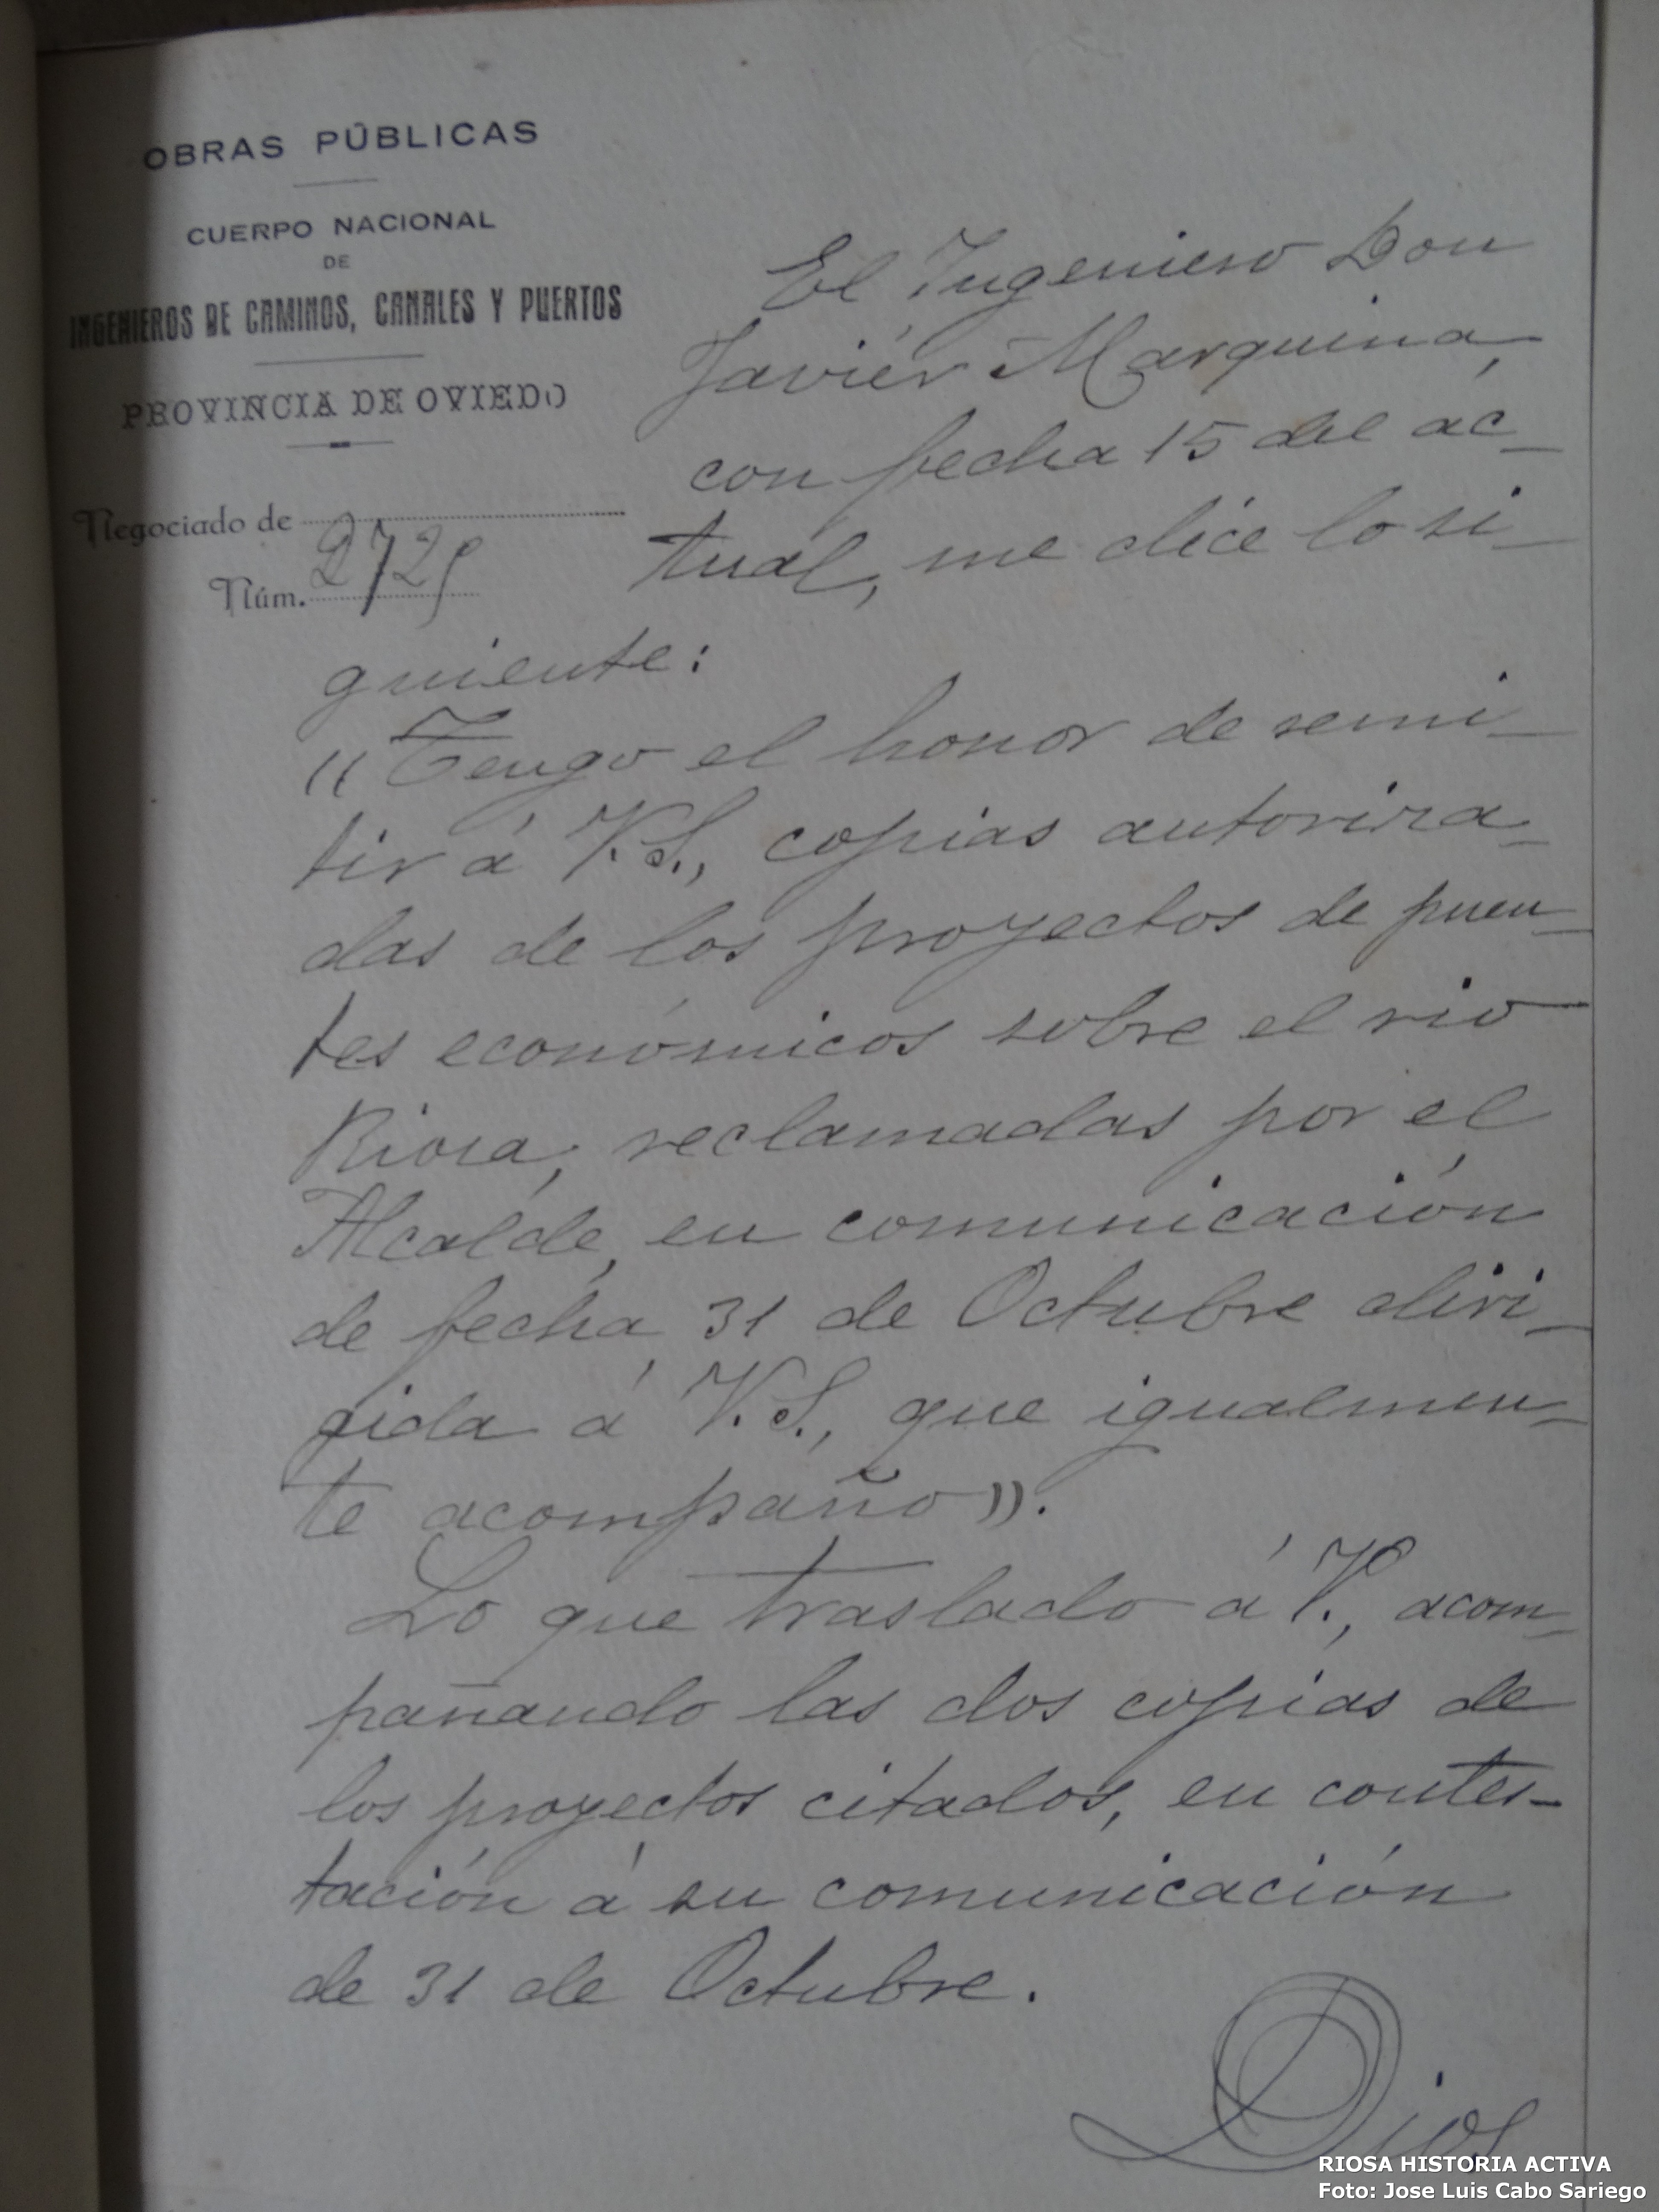 OBRAS PÚBLICAS
CUERPO NACIONAL
DE
INGENIEROS DE CAMINOS, CANALES Y PUERTOS
PROVINCIA DE OVIEDO
Negociado de
Núm.
El Ingeniero Don
Javiér Marquina,
con fecha 15 del ac-
tual, me dice lo si-
guiente:
"Tengo el honor de remi-
tir á V.S., copias autoriza-
das de los proyectos de puen-
tes económicos sobre el rio
Riosa, reclamadas por el
Alcalde, en comunicación
de fecha 31 de Octubre diri-
gida á V.S., que igualmen-
te acompaño".
Lo que traslado á V., acom-
pañando las dos copias de
los proyectos citados, en contes-
tación á su comunicación
de 31 de Octubre.
Dios
RIOSA HISTORIA ACTIVA
Foto: Jose Luis Cabo Sariego